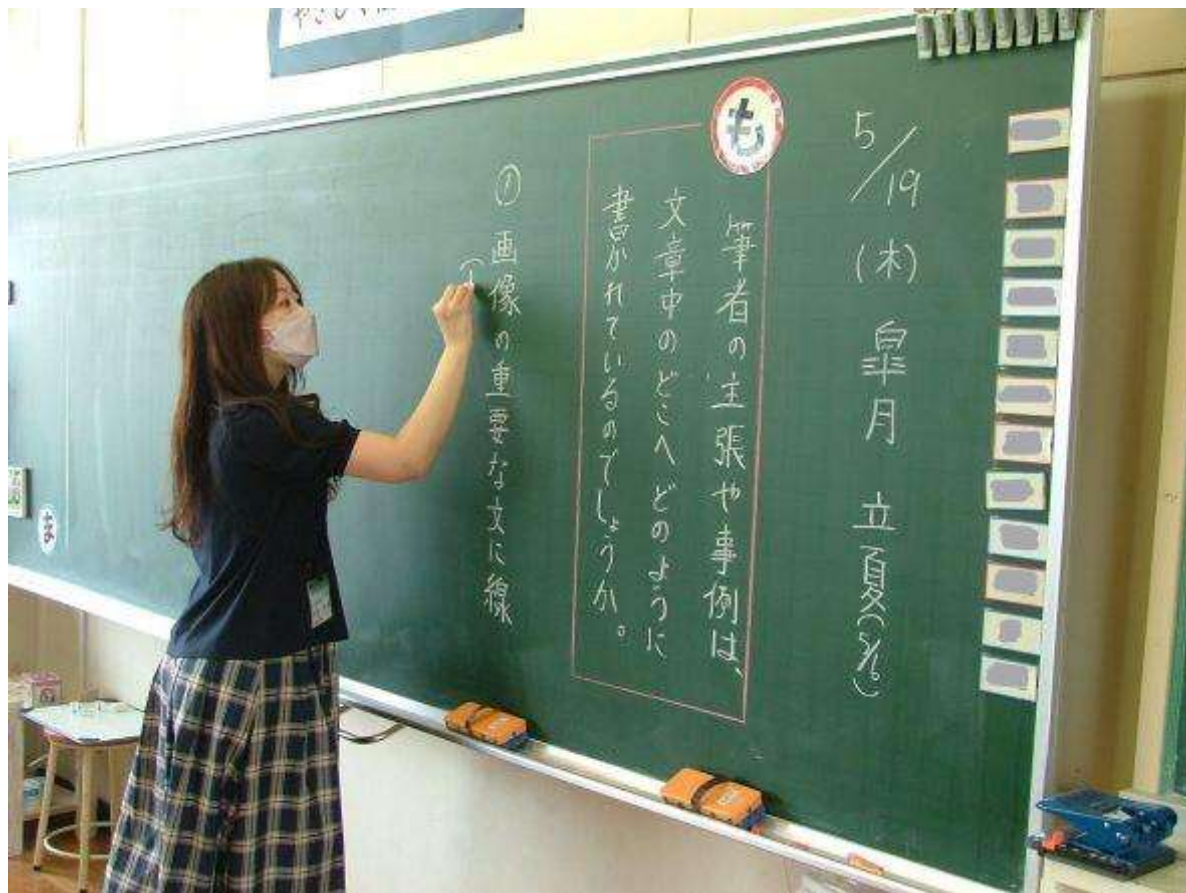 5/19(木) 皐月 立夏(5/6)
も
筆者の主張や事例は、
文章中のどこへどのように
書かれているのでしょうか。
① 画像の重要な文に線
(1
ま